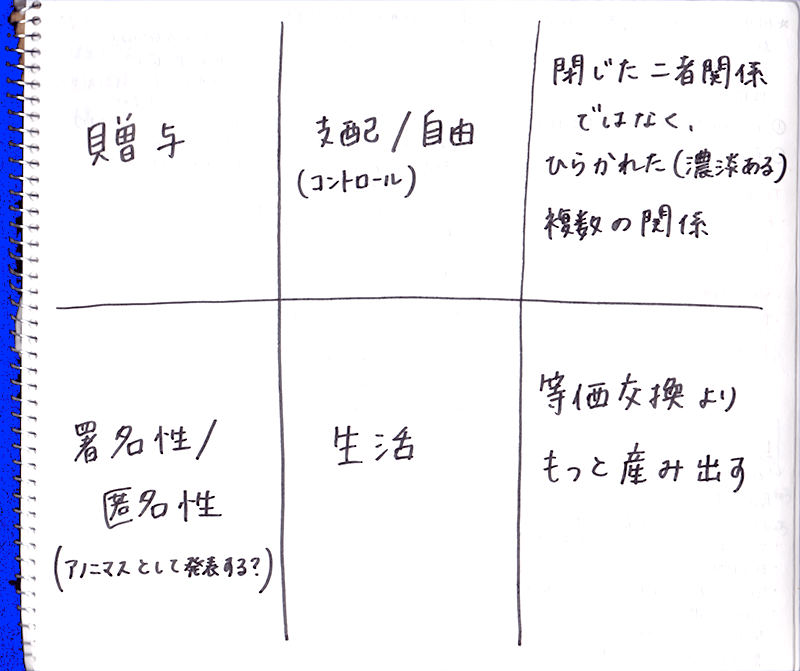 贈与
支配/自由
(コントロール)
閉じた二者関係
ではなく、
ひらかれた(濃淡ある)
複数の関係
署名性/
匿名性
(アノニマスとして発表する?)
生活
等価交換より
もっと産み出す